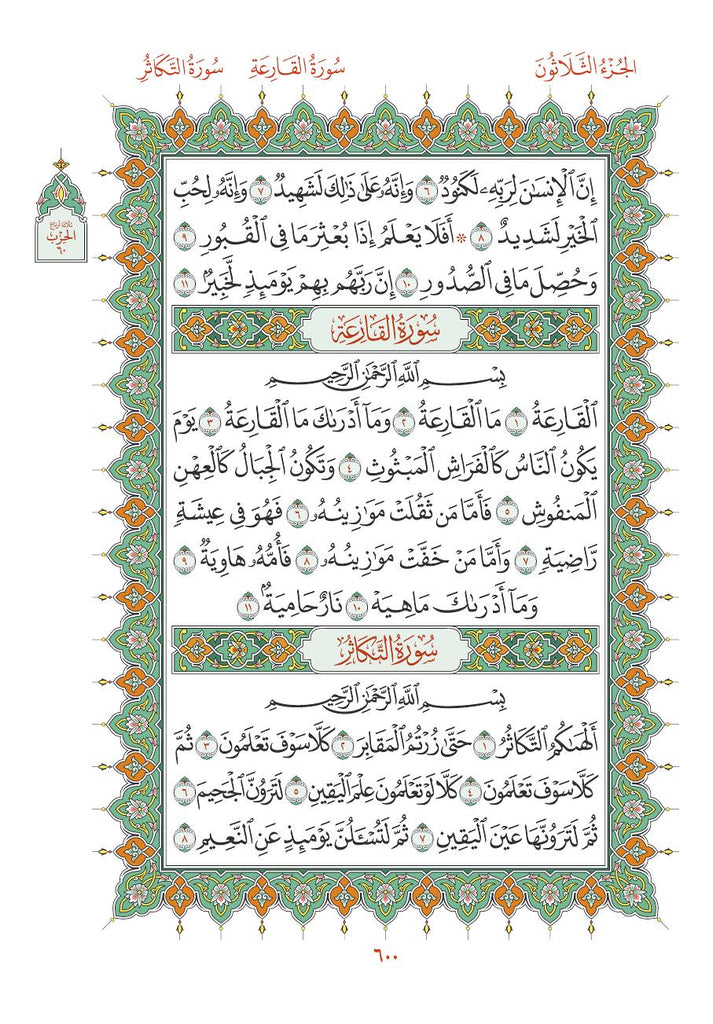 الجُزْءُ الثَّلَاثُونَ سُورَةُ القَارِعَةِ سُورَةُ التَّكَاثُرِ
ثلاثة أرباع
الحِزْب
٦٠
إِنَّ ٱلْإِنسَٰنَ لِرَبِّهِۦ لَكَنُودٌ ٦ وَإِنَّهُۥ عَلَىٰ ذَٰلِكَ لَشَهِيدٌ ٧ وَإِنَّهُۥ لِحُبِّ
ٱلْخَيْرِ لَشَدِيدٌ ٨ ۞ أَفَلَا يَعْلَمُ إِذَا بُعْثِرَ مَا فِى ٱلْقُبُورِ ٩
وَحُصِّلَ مَا فِى ٱلصُّدُورِ ١٠ إِنَّ رَبَّهُم بِهِمْ يَوْمَئِذٍ لَّخَبِيرٌۢ ١١
سُورَةُ القَارِعَةِ
بِسْمِ ٱللَّهِ ٱلرَّحْمَٰنِ ٱلرَّحِيمِ
ٱلْقَارِعَةُ ١ مَا ٱلْقَارِعَةُ ٢ وَمَآ أَدْرَىٰكَ مَا ٱلْقَارِعَةُ ٣ يَوْمَ
يَكُونُ ٱلنَّاسُ كَٱلْفَرَاشِ ٱلْمَبْثُوثِ ٤ وَتَكُونُ ٱلْجِبَالُ كَٱلْعِهْنِ
ٱلْمَنفُوشِ ٥ فَأَمَّا مَن ثَقُلَتْ مَوَٰزِينُهُۥ ٦ فَهُوَ فِى عِيشَةٍ
رَّاضِيَةٍ ٧ وَأَمَّا مَنْ خَفَّتْ مَوَٰزِينُهُۥ ٨ فَأُمُّهُۥ هَاوِيَةٌ ٩
وَمَآ أَدْرَىٰكَ مَا هِيَهْ ١٠ نَارٌ حَامِيَةٌۢ ١١
سُورَةُ التَّكَاثُرِ
بِسْمِ ٱللَّهِ ٱلرَّحْمَٰنِ ٱلرَّحِيمِ
أَلْهَىٰكُمُ ٱلتَّكَاثُرُ ١ حَتَّىٰ زُرْتُمُ ٱلْمَقَابِرَ ٢ كَلَّا سَوْفَ تَعْلَمُونَ ٣ ثُمَّ
كَلَّا سَوْفَ تَعْلَمُونَ ٤ كَلَّا لَوْ تَعْلَمُونَ عِلْمَ ٱلْيَقِينِ ٥ لَتَرَوُنَّ ٱلْجَحِيمَ ٦
ثُمَّ لَتَرَوُنَّهَا عَيْنَ ٱلْيَقِينِ ٧ ثُمَّ لَتُسْـَٔلُنَّ يَوْمَئِذٍ عَنِ ٱلنَّعِيمِ ٨
٦٠٠